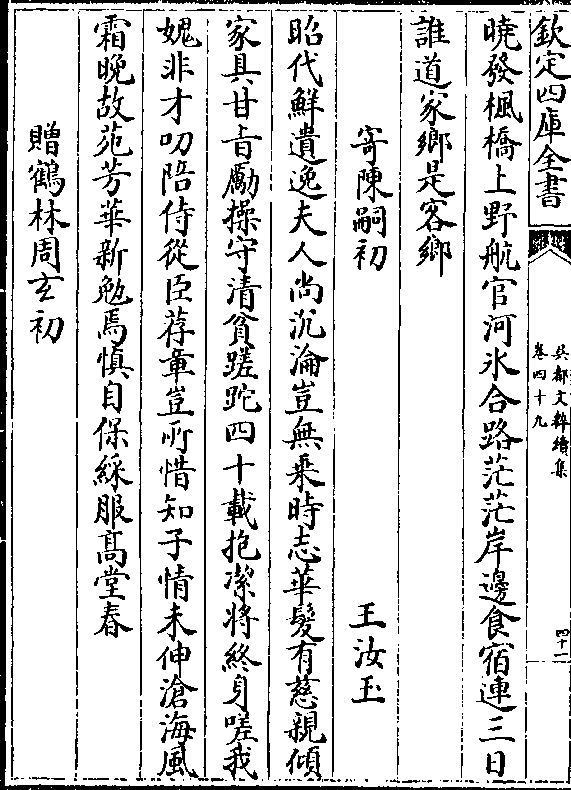 欽定四庫全書
吳都文粹續集
卷四十九
四十一
曉發楓橋上野航官河氷合路茫茫岸邊食宿連三日
誰道家鄉是客鄉
寄陳嗣初 王汝玉
昭代鮮遺逸夫人尚沉淪豈無乗時志華髮有慈親傾
家具甘㫖勵操守清貧蹉跎四十載抱潔將終身嗟我
媿非才叨陪侍從臣荐章豈所惜知子情未伸滄海風
霜晚故苑芳華新勉焉慎自保綵服髙堂春
贈鶴林周玄初